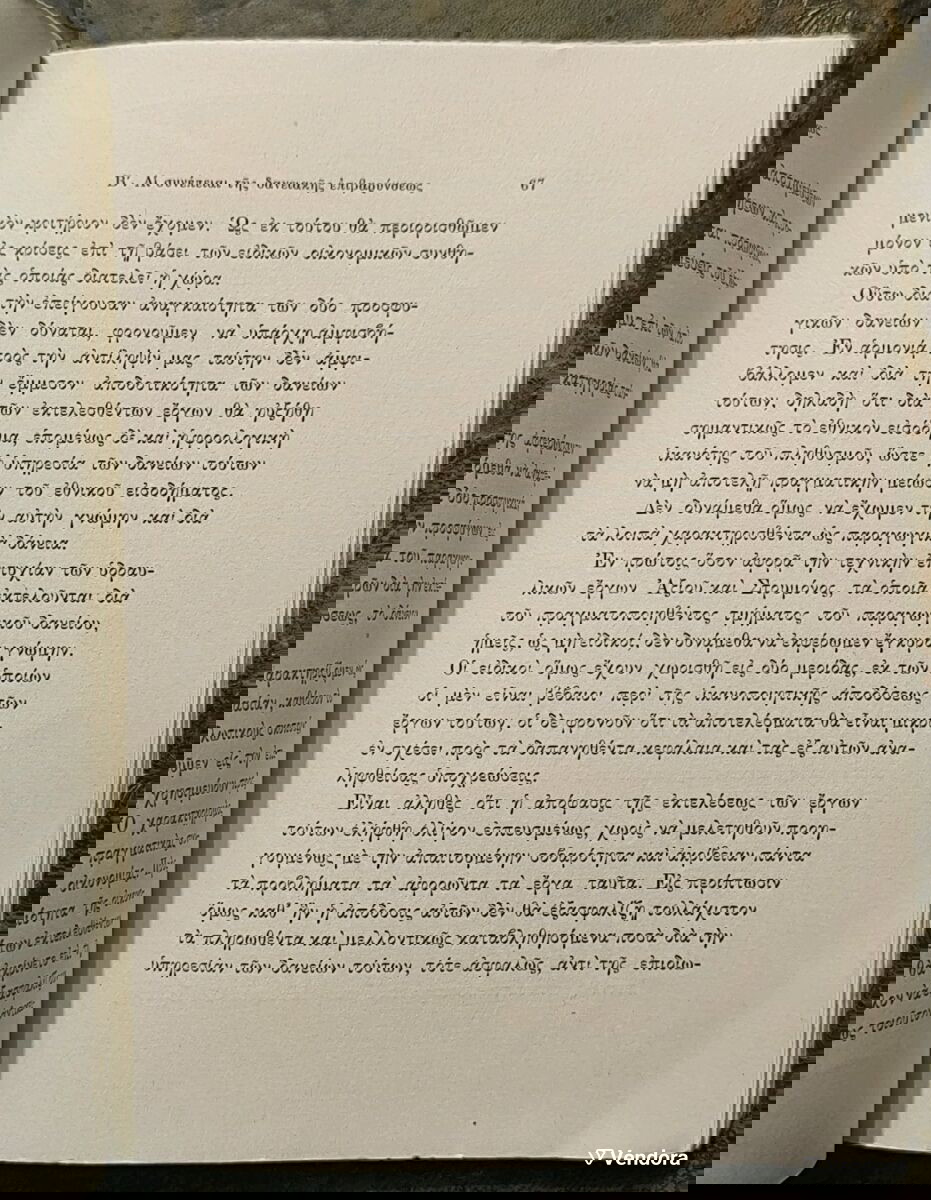 Β΄. Αἱ συνέπειαι τῆς δανειακῆς ἐπιβαρύνσεως 67
μενικὸν κριτήριον δὲν ἔχομεν. Ὡς ἐκ τούτου θὰ περιορισθῶμεν
μόνον εἰς κρίσεις ἐπὶ τῇ βάσει τῶν εἰδικῶν οἰκονομικῶν συνθη-
κῶν ὑπὸ τὰς ὁποίας διατελεῖ ἡ χώρα.
Οὕτω διὰ τὴν ἐπείγουσαν ἀναγκαιότητα τῶν δύο προσφυ-
γικῶν δανείων δὲν δύναται, φρονοῦμεν, νὰ ὑπάρχῃ ἀμφισβή-
τησις. Ἐν ἁρμονίᾳ πρὸς τὴν ἀντίληψίν μας ταύτην δὲν ἀμφι-
βάλλομεν καὶ διὰ τὴν ἔμμεσον ἀποδοτικότητα τῶν δανείων
τούτων, δηλαδὴ ὅτι διὰ τῶν ἐκτελεσθέντων ἔργων θὰ ηὐξήθη
σημαντικῶς τὸ ἐθνικὸν εἰσόδημα, ἑπομένως δὲ καὶ ἡ φορολογικὴ
ἱκανότης τοῦ πληθυσμοῦ, ὥστε ἡ ὑπηρεσία τῶν δανείων τούτων
νὰ μὴ ἀποτελῇ πραγματικὴν μείωσιν τοῦ ἐθνικοῦ εἰσοδήματος.
Δὲν δυνάμεθα ὅμως νὰ ἔχωμεν τὴν αὐτὴν γνώμην καὶ διὰ
τὰ λοιπὰ χαρακτηρισθέντα ὡς παραγωγικὰ δάνεια.
Ἐν πρώτοις ὅσον ἀφορᾷ τὴν τεχνικὴν ἐπιτυχίαν τῶν ὑδραυ-
λικῶν ἔργων Ἀξιοῦ καὶ Στρυμόνος, τὰ ὁποῖα ἐκτελοῦνται διὰ
τοῦ πραγματοποιηθέντος τμήματος τοῦ παραγωγικοῦ δανείου,
ἡμεῖς, ὡς μὴ εἰδικοί, δὲν δυνάμεθα νὰ ἐκφέρωμεν ἔγκυρον γνώμην.
Οἱ εἰδικοὶ ὅμως ἔχουν χωρισθῆ εἰς δύο μερίδας, ἐκ τῶν ὁποίων
οἱ μὲν εἶναι βέβαιοι περὶ τῆς ἱκανοποιητικῆς ἀποδόσεως τῶν
ἔργων τούτων, οἱ δὲ φρονοῦν ὅτι τὰ ἀποτελέσματα θὰ εἶναι μικρὰ
ἐν σχέσει πρὸς τὰ δαπανηθέντα κεφάλαια καὶ τὰς ἐξ αὐτῶν ἀνα-
ληφθείσας ὑποχρεώσεις.
Εἶναι ἀληθὲς ὅτι ἡ ἀπόφασις τῆς ἐκτελέσεως τῶν ἔργων
τούτων ἐλήφθη ὀλίγον ἐσπευσμένως, χωρὶς νὰ μελετηθοῦν προη-
γουμένως με τὴν ἀπαιτουμένην σοβαρότητα καὶ ἀκρίβειαν πάντα
τὰ προβλήματα τὰ ἀφορῶντα τὰ ἔργα ταῦτα. Εἰς περίπτωσιν
ὅμως καθ' ἣν ἡ ἀπόδοσις αὐτῶν δὲν θὰ ἐξασφαλίζῃ τοὐλάχιστον
τὰ πληρωθέντα καὶ μελλοντικῶς καταβληθησόμενα ποσὰ διὰ τὴν
ὑπηρεσίαν τῶν δανείων τούτων, τότε ἀσφαλῶς, ἀντὶ τῆς ἐπιδιω-
Vendora